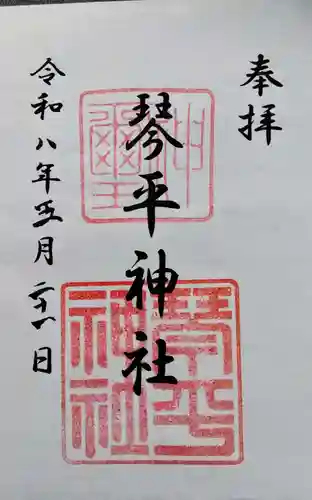 奉拝
琴平神社
令和八年五月二十一日
神璽
琴平神社